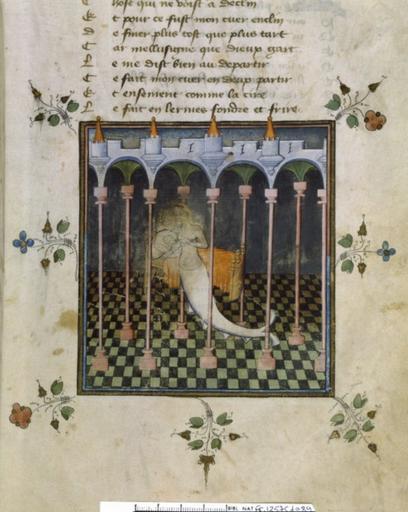 hose qui ne voist a declin
t pour ce fust mon cuer enclin
e finer plus tost que plus tart
ar mellusigne que dieux gart
e me dist bien au departir
e fait mon cuer en deux partir
t ensement comme la cire
e fait en lermes fondre et frire
BIBL NAT Fr. 12575